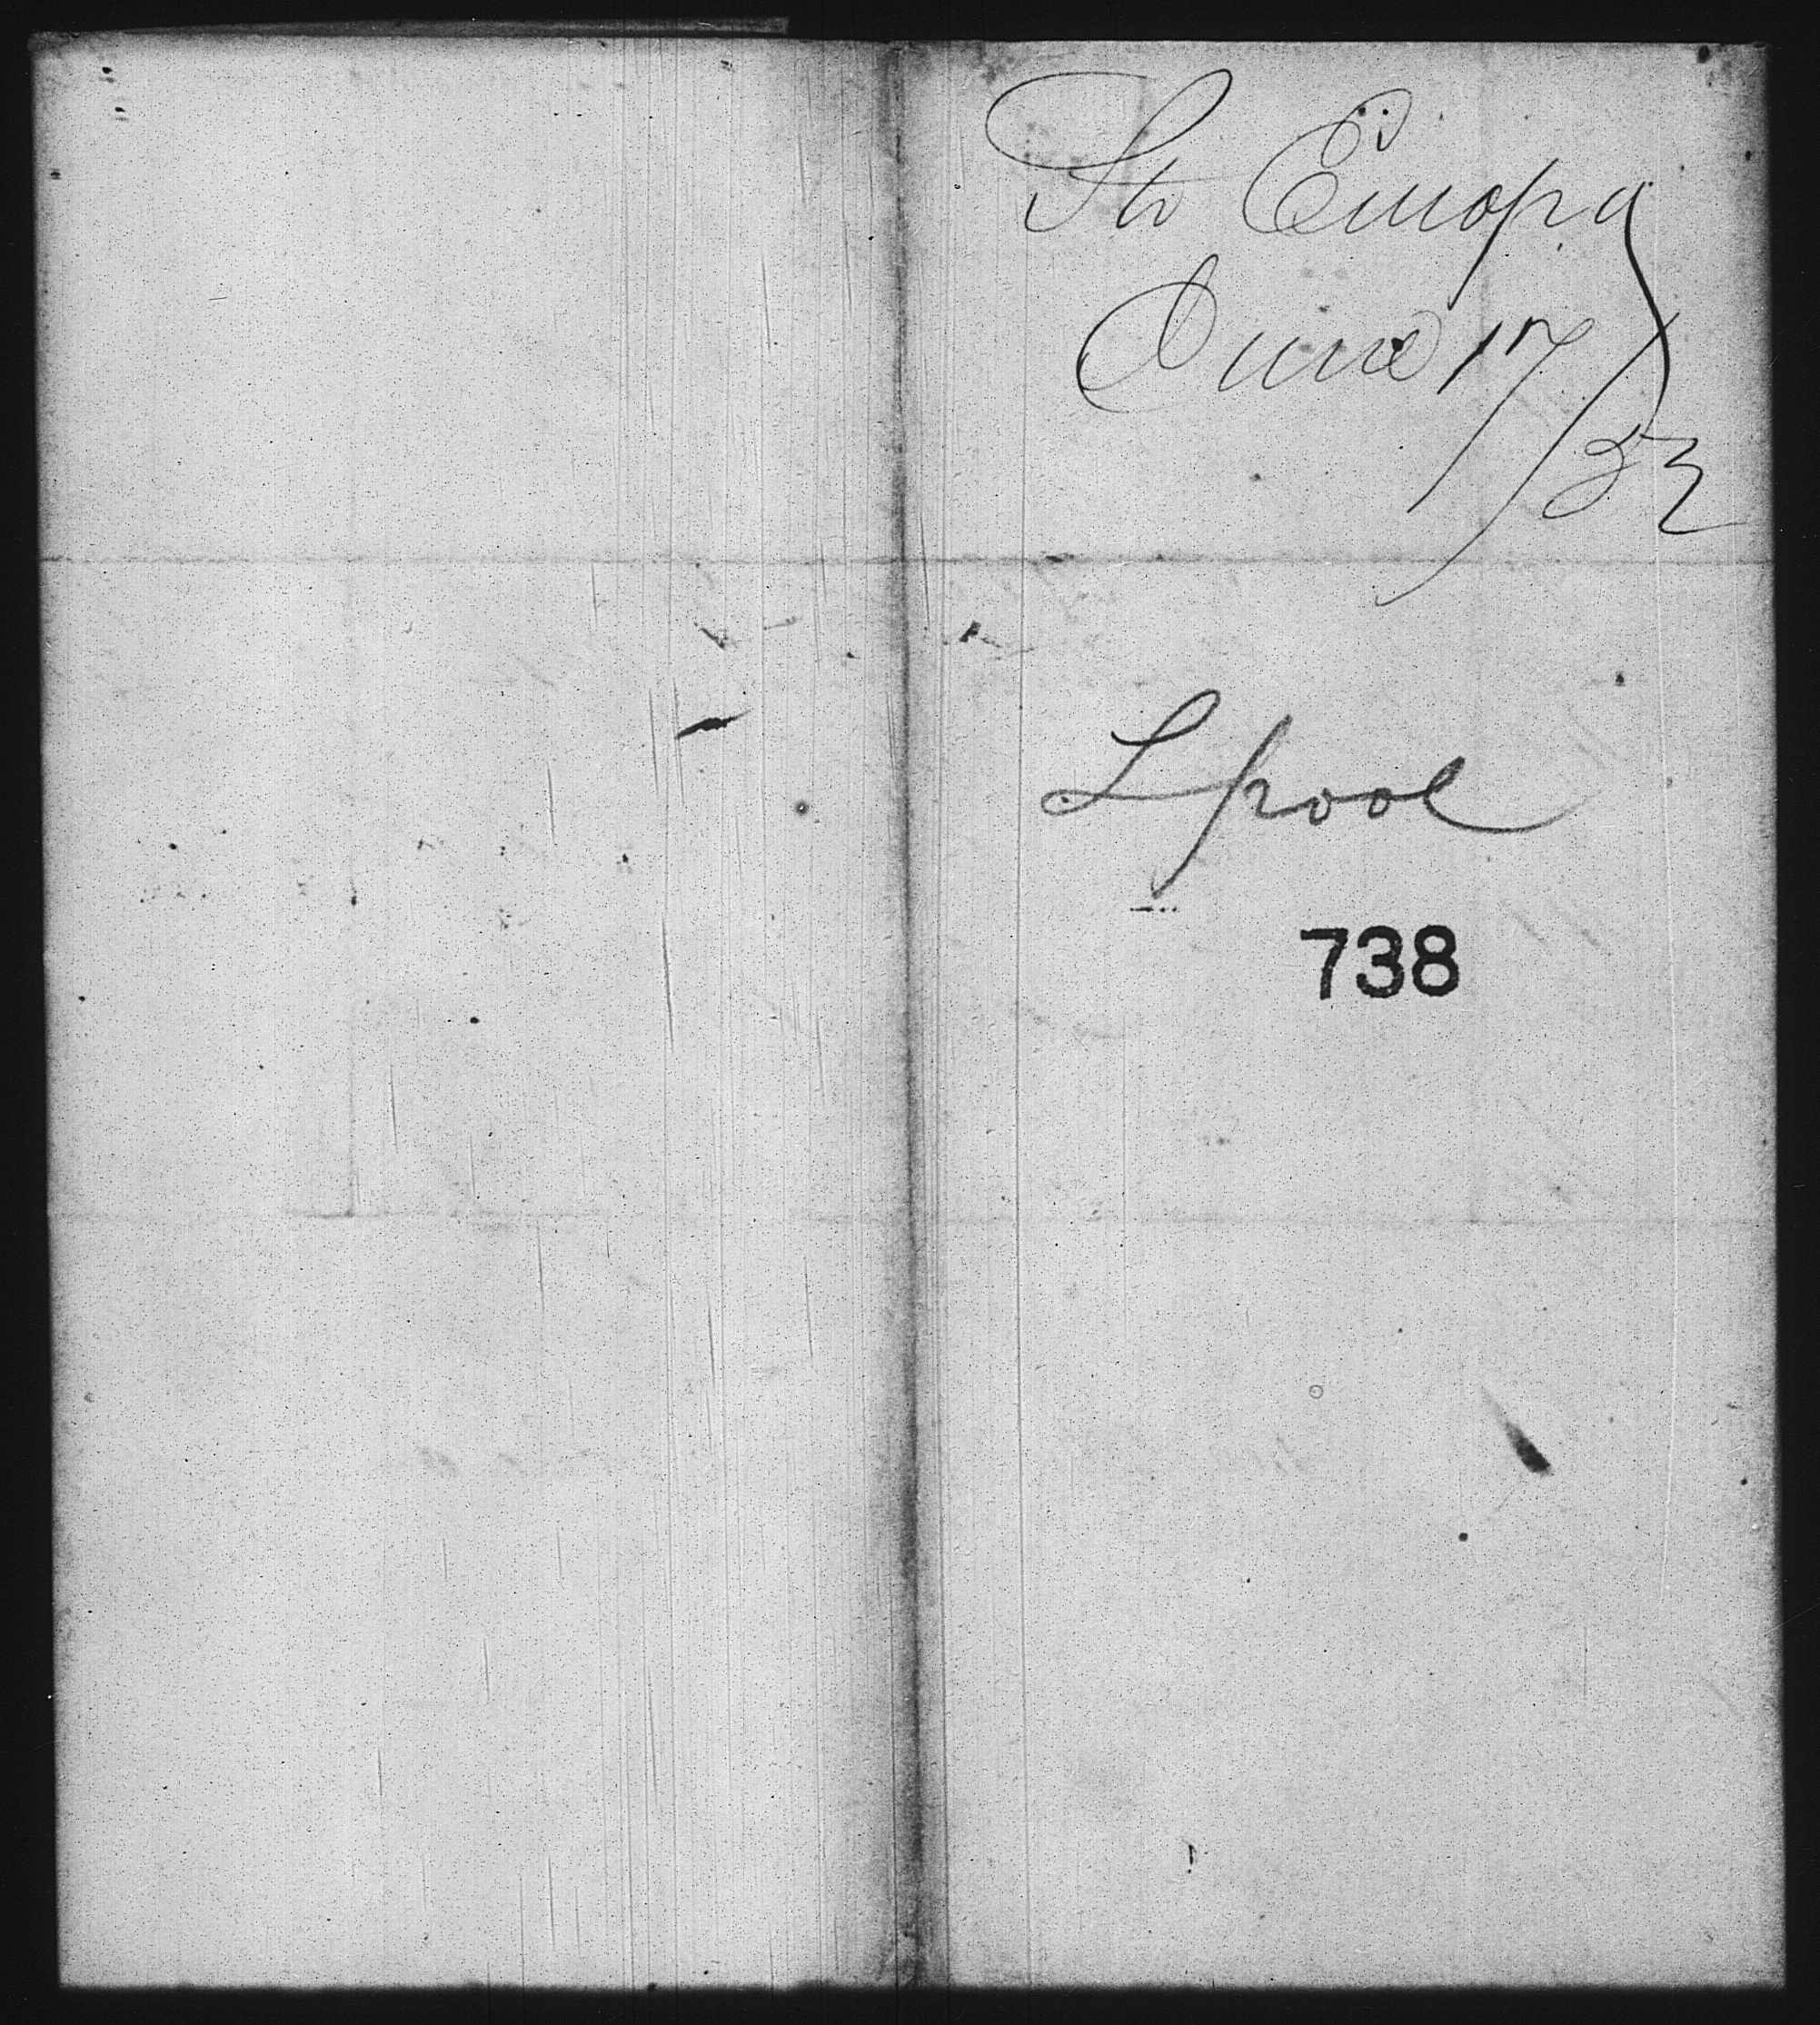 Str Europa
June 17/52
Lpool
738